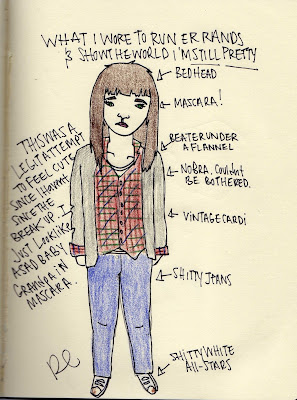 WHAT I WORE TO RUN ERRANDS
& SHOW THE WORLD I'M STILL PRETTY
BEDHEAD
MASCARA!
BEATER UNDER
A FLANNEL
NO BRA. COULDN'T
BE BOTHERED.
VINTAGE CARDI
SHITTY JEANS
SHITTY WHITE
ALL-STARS
THIS WAS A
LEGIT ATTEMPT
TO FEEL CUTE
SINCE I HAVEN'T
SINCE THE
BREAK UP. I
JUST LOOK LIKE
A SAD BABY
GRANDPA IN
MASCARA.